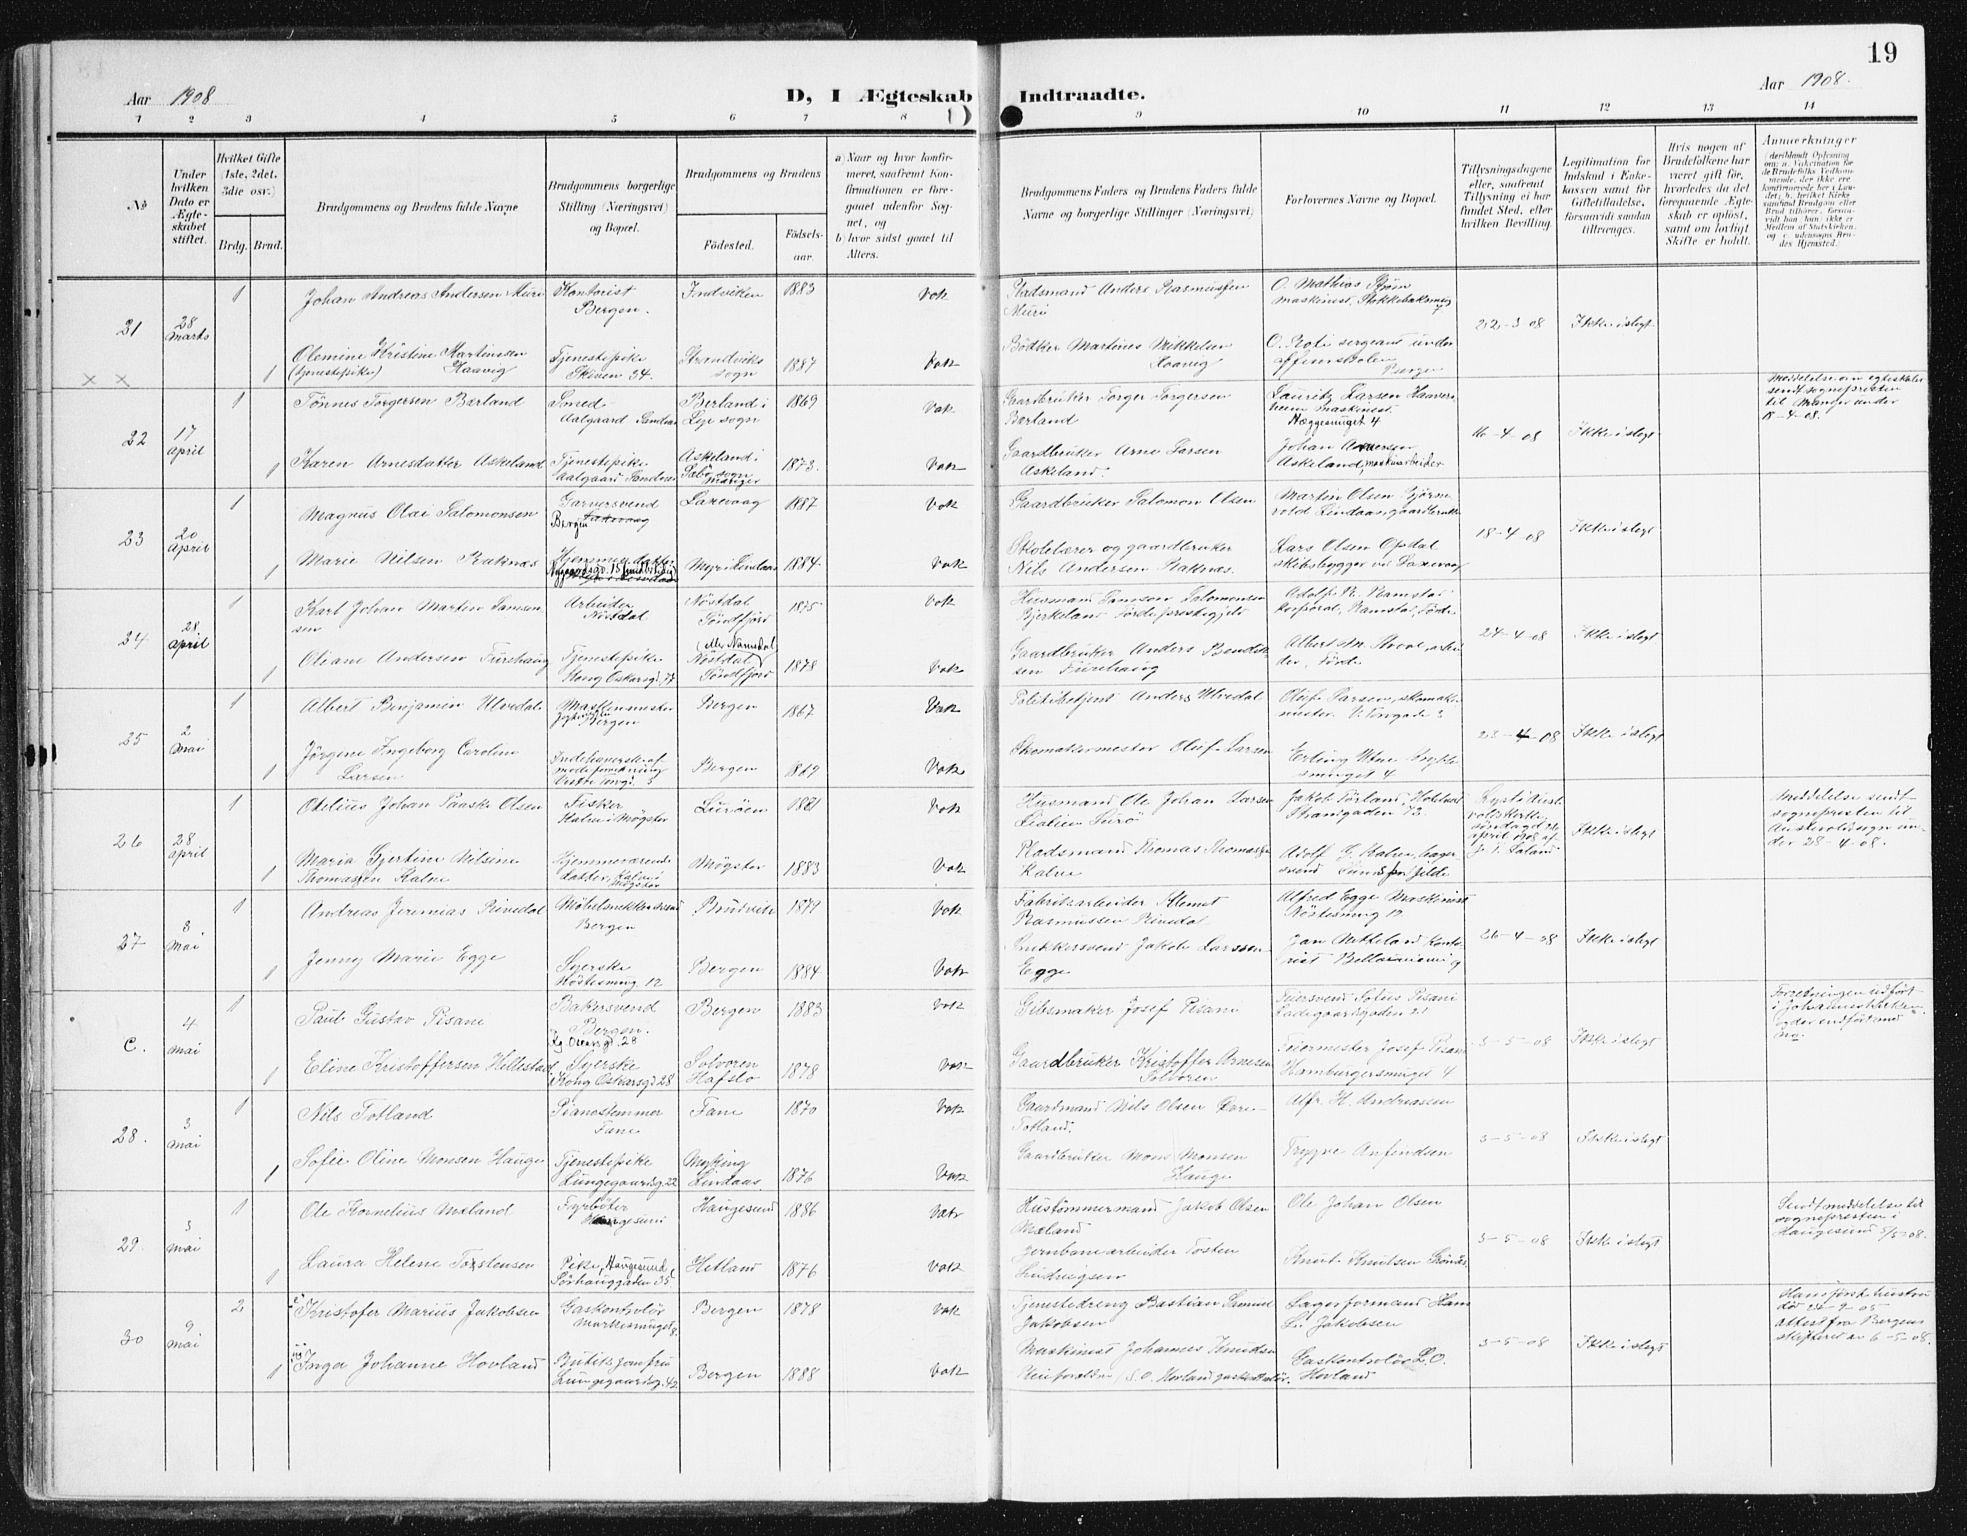 19
Aar 1908
D, I Ægteskab Indtraadte.
Aar 1908.
1 2 3 4 5 6 7 8 9 10 11 12 13 14
No
Under hvilken Dato er Ægteskabet stiftet.
Hvilket Gifte (1ste, 2det, 3die osv.)
Brdg. Brud.
Brudgommens og Brudens fulde Navne
Brudgommens borgerlige Stilling (Næringsvei) og Bopæl.
Brudgommens og Brudens
Fødested.
Fødselsaar.
a) Naar og hvor konfirmeret, saafremt Konfirmationen er foregaaet udenfor Sognet, og
b) hvor sidst gaaet til Alters.
Brudgommens Faders og Brudens Faders fulde Navne og borgerlige Stillinger (Næringsvei)
Forlovernes Navne og Bopæl.
Tillysningsdagene eller, saafremt Tillysning ei har fundet Sted, efter hvilken Bevilling.
Legitimation for Indskud i Enkekassen samt for Giftetilladelse, forsaavidt saadan tiltrænges.
Hvis nogen af Brudefolkene har været gift før, hvorledes da det foregaaende Ægteskab er opløst, samt om lovligt Skifte er holdt.
Anmærkninger
21 28 Marts
1 Johan Andreas Andersen Muri Kontorist Bergen. Indviken 1883 Vok Pladsmand Anders Rasmussen Muri O. Mathias Strøm maskinist,
22-3 08 Ikke i slegt
1 Olemine Kristine Martinsen Haavig (tjenestepike) Tjenestepike Skiven 34. Strandviks sogn 1887 Vok Bødker Martines Mikkelsen Haavig O. Roti sergeant under Bergen
x x
22 17 April
1 Tønnes Torgersen Berland Smed Aalgaard Sandnes Berland i Lye sogn 1869 Vok Gaardbruker Torger Torgersen Berland Lauritz Larsen maskinist Heggesmuget 4
16-4-08 Ikke i slegt
Meddelse om egteskabet sendt sognepresten til under 18-4-08.
1 Karen Arnesdatter Askeland Tjenestepike Aalgaard Sandnes Askeland i Sæbø sogn Manger 1873. Vok Gaardbruker Arne Larsen Askeland. Johan Arnesen Askeland, maskinarbeider
23 20 April
1 Magnus Olai Salomonsen Garversvend Bergen Laxevaag 1887 Vok Gaardbruker Salomon Olsen Martin Olsen
18-4 08 Ikke i slegt
1 Marie Nilsen Raknæs Hjemmedatter Nygaardsgd. 15 Myr i Lindaas 1884. Vok Skolelærer og gaardbruker Nils Andersen Raknæs. Lars Olsen Opdal skibsbygger v. Laxevaag
24 28 April
1 Karl Johan Martin Samsonsen Arbeider Nøstdal Nøstdal Søndfjord 1875 Vok Husmand Samson Salomonsen Bjerkeland Førde prestegjeld Adolf R. Ramstad korporal, Ramstad, Førde
24-4-08 Ikke i slegt
1 Oliane Andersen Furehaug Tjenestepike Kong Oskarsgd. 77 (eller Namsdal) Nøstdal Søndfjord 1878 Vok Gaardbruker Anders Bendiksen Furehaug Albert M. arbeider, Førde
25 2 Mai
1 Albert Benjamin Ulvedal Maskinmester Bergen Bergen 1867 Vok Politibetjent Anders Ulvedal Oluf Larsen, skomakermester. V. Torvgade 3
23-4-08 Ikke i slegt
1 Jørgine Ingeborg Caroline Larsen Indehaverske af modeforretning Vestre Torvgd. 3 Bergen 1869 Vok Skomakermester Oluf Larsen Erling Utne smuget 4
26 28 April
1 Otelius Johan Paaske Olsen Fisker Kalve i Møgster Lurøen 1881 Vok Husmand Ole Johan Larsen Jakob Førland, Strandgaden 73.
Lyst i Austvolds kirke, søndag d. 26 april 1908 af
Ikke i slegt
Meddelelse sendt sognepresten til Austevold sogn under 28-4-08.
1 Maria Gjertine Nilsine Thomassen Kalve Hjemmeværende datter, Kalve i Møgster Møgster 1883 Vok Pladsmand Thomas Thomassen Kalve Adolf G. Kalve,
27 3 Mai
1 Andreas Jeremias Rivedal Møbelsnekkersvend Bergen Brudvik 1879 Vok Fabrikarbeider Klemet Rasmussen Rivedal Alfred Egge Maskinist Nøstesmug 12
26-4-08 Ikke i slegt
1 Jenny Marie Egge Syerske Nøstesmug. 12 Bergen 1884 Vok Snikkersvend Jakob Larssen Egge Jan Netteland Kontorist
C. 4 Mai
1 Paul Gustav Pisani Bakersvend Bergen. Kg. Oscarsgd. 28 Bergen 1883 Vok Gibsmaker Josef Pisani Feiersvend Julius Pisani Ladegaardsgaden 21
3-5-08 Ikke i slegt
Forretningen udført i Johanneskirken og der indført med no.
1 Eline Kristoffersen Hillestad Syerske Kong Oskarsgd. 28 Solvoren Hafslo 1878 Vok Gaardbruker Kristoffer Arnesen Solvoren Feiermester Josef Pisani Hamburgersmuget 4
28. 3 Mai
1 Nils Totland Pianostemmer Fane Fane 1870 Vok Gaardmand Nils Olsen Totland. Alfr. H. Andreassen
3-5-08 Ikke i slegt
1 Sofie Oline Monsen Hauge Tjenestepike Lungegaardsg. 22 Myking Lindaas. 1876 Vok Gaardbruker Mons Monsen Hauge Trygve Anfindsen
29. 3 Mai
1 Ole Kornelius Mæland Fyrbøter Haugesund Haugesund 1886 Vok Hustømmermand Jakob Olsen Mæland Ole Johan Olsen
3-5-08 Ikke i slegt
Sendt meddelelse til sognepresten i Haugesund 5/5-08.
1 Laura Helene Torstensen Pike, Haugesund, Sørhauggaden 35 Hetland 1876 Vok Jernbanearbeider Tosten Ludvigsen Knut Knutsen
30 9 Mai
2 Kristofer Marius Jakobsen Gaskontrolør Markesmuget 8. Bergen 1878 Vok Tjenestedreng Bastian Samuel Jakobsen Lagerformand Jakobsen
3-5-08 Ikke i slegt
Hans første hustru død 24-9-05 attest fra Bergens skifteret av 6-5-08.
1 Inga Johanne Hovland Butiksjomfru Lungegaardsg. 42 Bergen 1888 Vok Maskinist Johannes Knudsen Pleieforældre S. O. Hovland gaskontrolør. Gaskontrolør S. O. Hovland